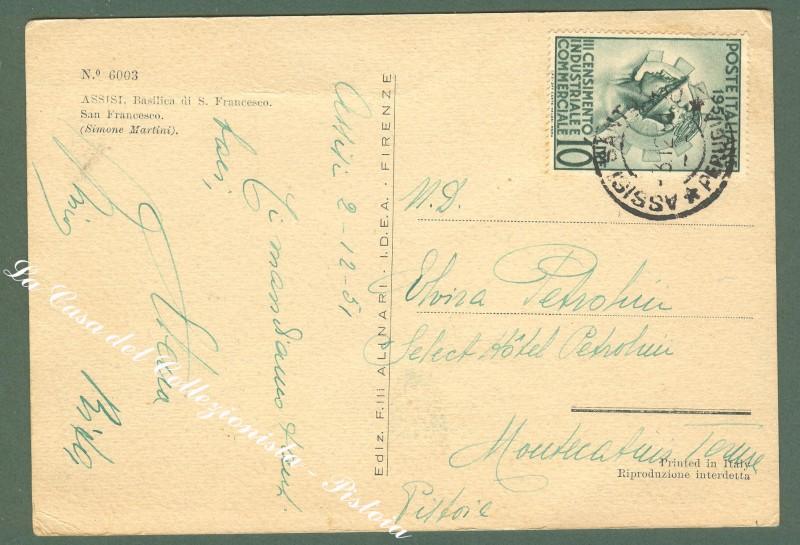 N.º 6003
ASSISI. Basilica di S. Francesco.
San Francesco.
(Simone Martini).
Assisi 2-12-51
Ti mandiamo tanti
baci,
Ediz. F.lli ALINARI - I.D.E.A. - FIRENZE
POSTE ITALIANE
III CENSIMENTO
INDUSTRIALE E
COMMERCIALE
10
ASSISI
PERUGIA
N.D.
Elvira Petrolini
Select Hôtel Petrolini
Montecatini Terme
Pistoia
Printed in Italy
Riproduzione interdetta
La Casa del Collezionista - Pistoia